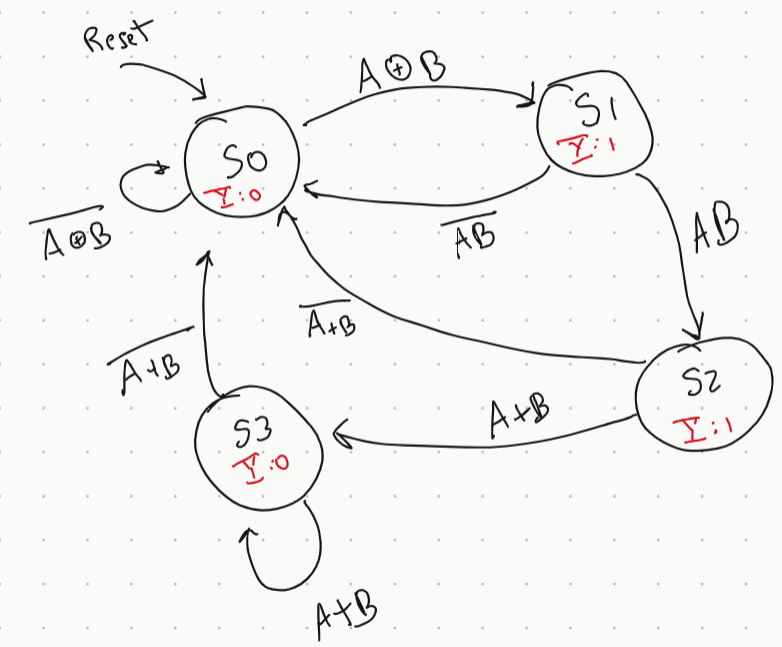 Reset
A⊕B
S0
Y:0
S1
Y:1
A̅⊕̅B̅
A̅B̅
AB
A̅+̅B̅
A̅+̅B̅
S2
Y:1
A+B
S3
Y:0
A+B